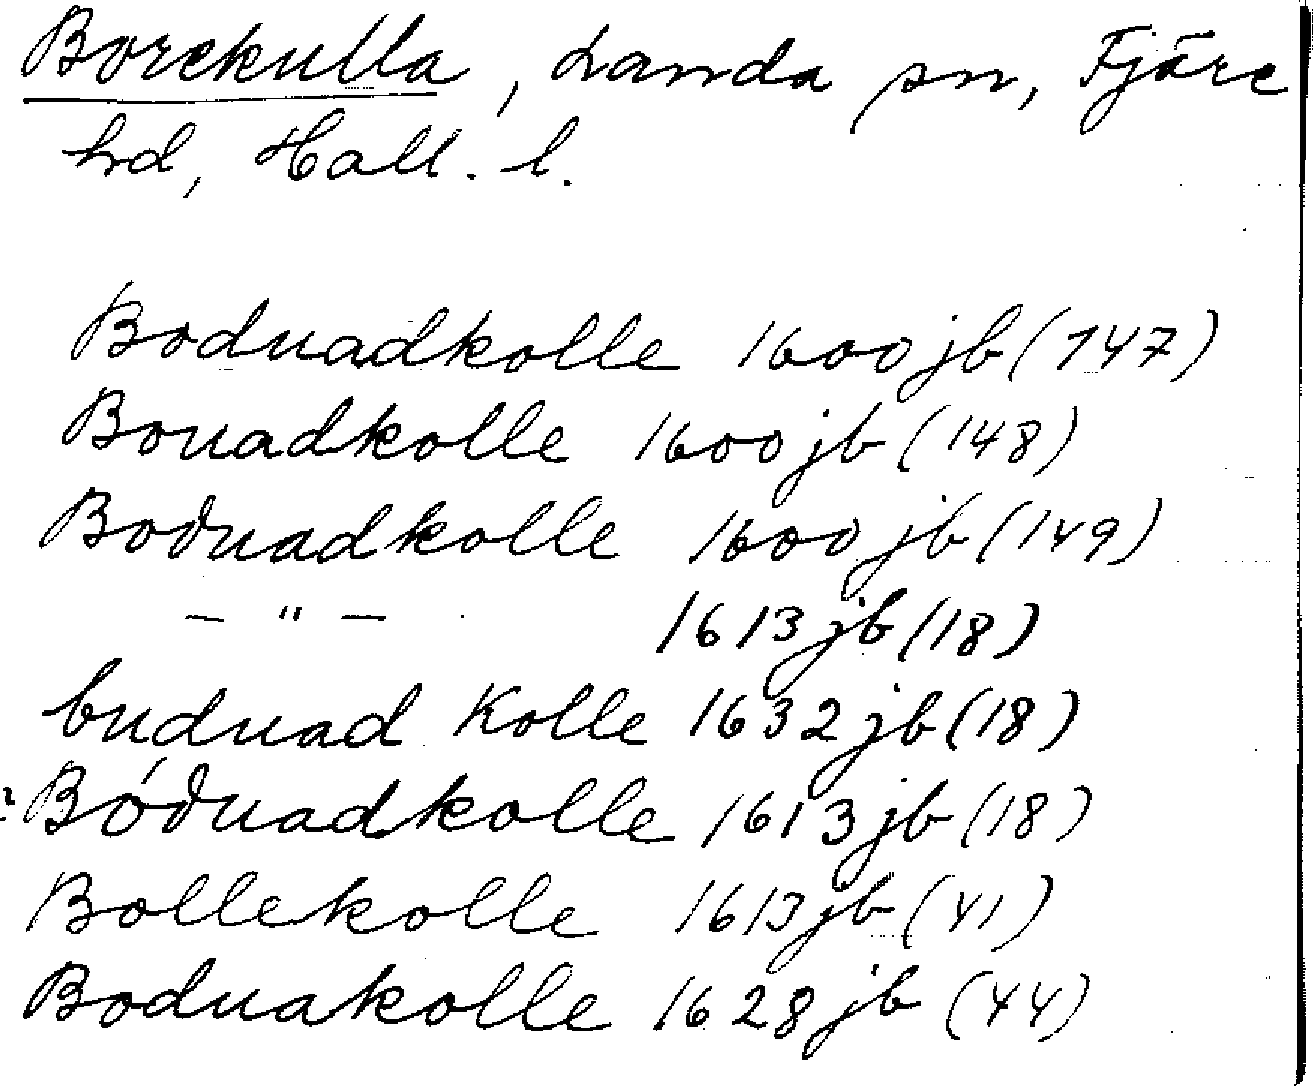 Borekulla, Landa sn, Fjäre
hd, Hall. l.
Boduadkolle 1600 jb (147)
Bouadkolle 1600 jb (148)
Boðuadkolle 1600 jb (149)
— " — 1613 jb (18)
buduad Kolle 1632 jb (18)
? Bóðuadkolle 1613 jb (18)
Bollekolle 1613 jb (41)
Boduakolle 1628 jb (44)